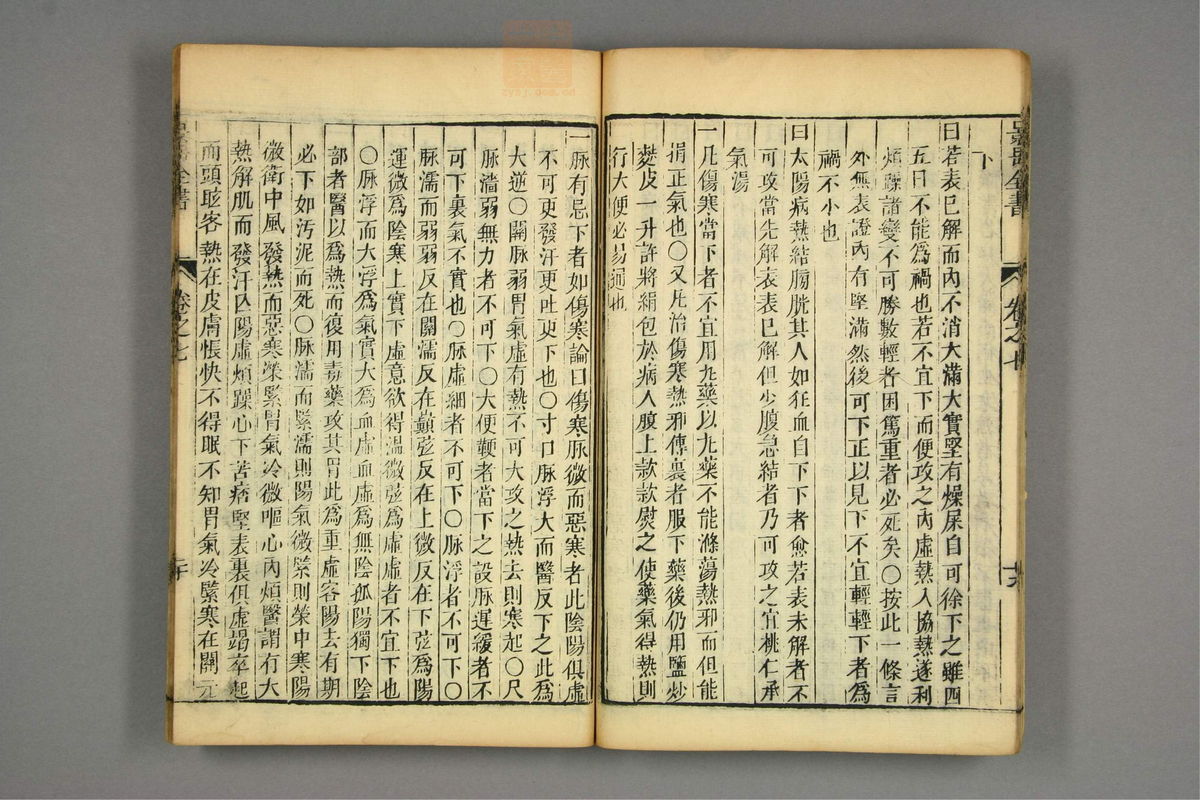 下
曰若表已解而內不消大滿大實堅有燥屎自可徐下之雖四
五日不能爲禍也若不宜下而便攻之內虛熱入協熱遂利
煩躁諸變不可勝數輕者困篤重者必死矣○按此一條言
外無表證內有堅滿然後可下正以見下不宜輕輕下者爲
禍不小也
曰太陽病熱結膀胱其人如狂血自下下者愈若表未解者不
可攻當先解表表已解但少腹急結者乃可攻之宜桃仁承
氣湯
一凡傷寒當下者不宜用丸藥以丸藥不能滌蕩熱邪而但能
損正氣也○又凡治傷寒熱邪傳裏者服下藥後仍用鹽炒
麩皮一升許將絹包於病人腹上款款熨之使藥氣得熱則
行大便必易通也
景岳全書
卷之七
一脉有忌下者如傷寒論曰傷寒脉微而惡寒者此陰陽俱虛
不可更發汗更吐更下也○寸口脉浮大而醫反下之此爲
大逆○關脉弱胃氣虛有熱不可大攻之熱去則寒起○尺
脉濇弱無力者不可下○大便鞕者當下之設脉遲緩者不
可下裏氣不實也○脉虛細者不可下○脉浮者不可下○
脉濡而弱弱反在關濡反在巔弦反在上微反在下弦爲陽
運微爲陰寒上實下虛意欲得溫微弦爲虛虛者不宜下也
○脉浮而大浮爲氣實大爲血虛血虛爲無陰孤陽獨下陰
部者醫以爲熱而復用毒藥攻其胃此爲重虛客陽去有期
必下如汚泥而死○脉濡而緊濡則陽氣微緊則榮中寒陽
微衛中風發熱而惡寒榮緊胃氣冷微嘔心內煩醫謂有大
熱解肌而發汗亡陽虛煩躁心下苦痞堅表裏俱虛竭卒起
而頭眩客熱在皮膚悵怏不得眠不知胃氣冷緊寒在關元
全書
卷之七